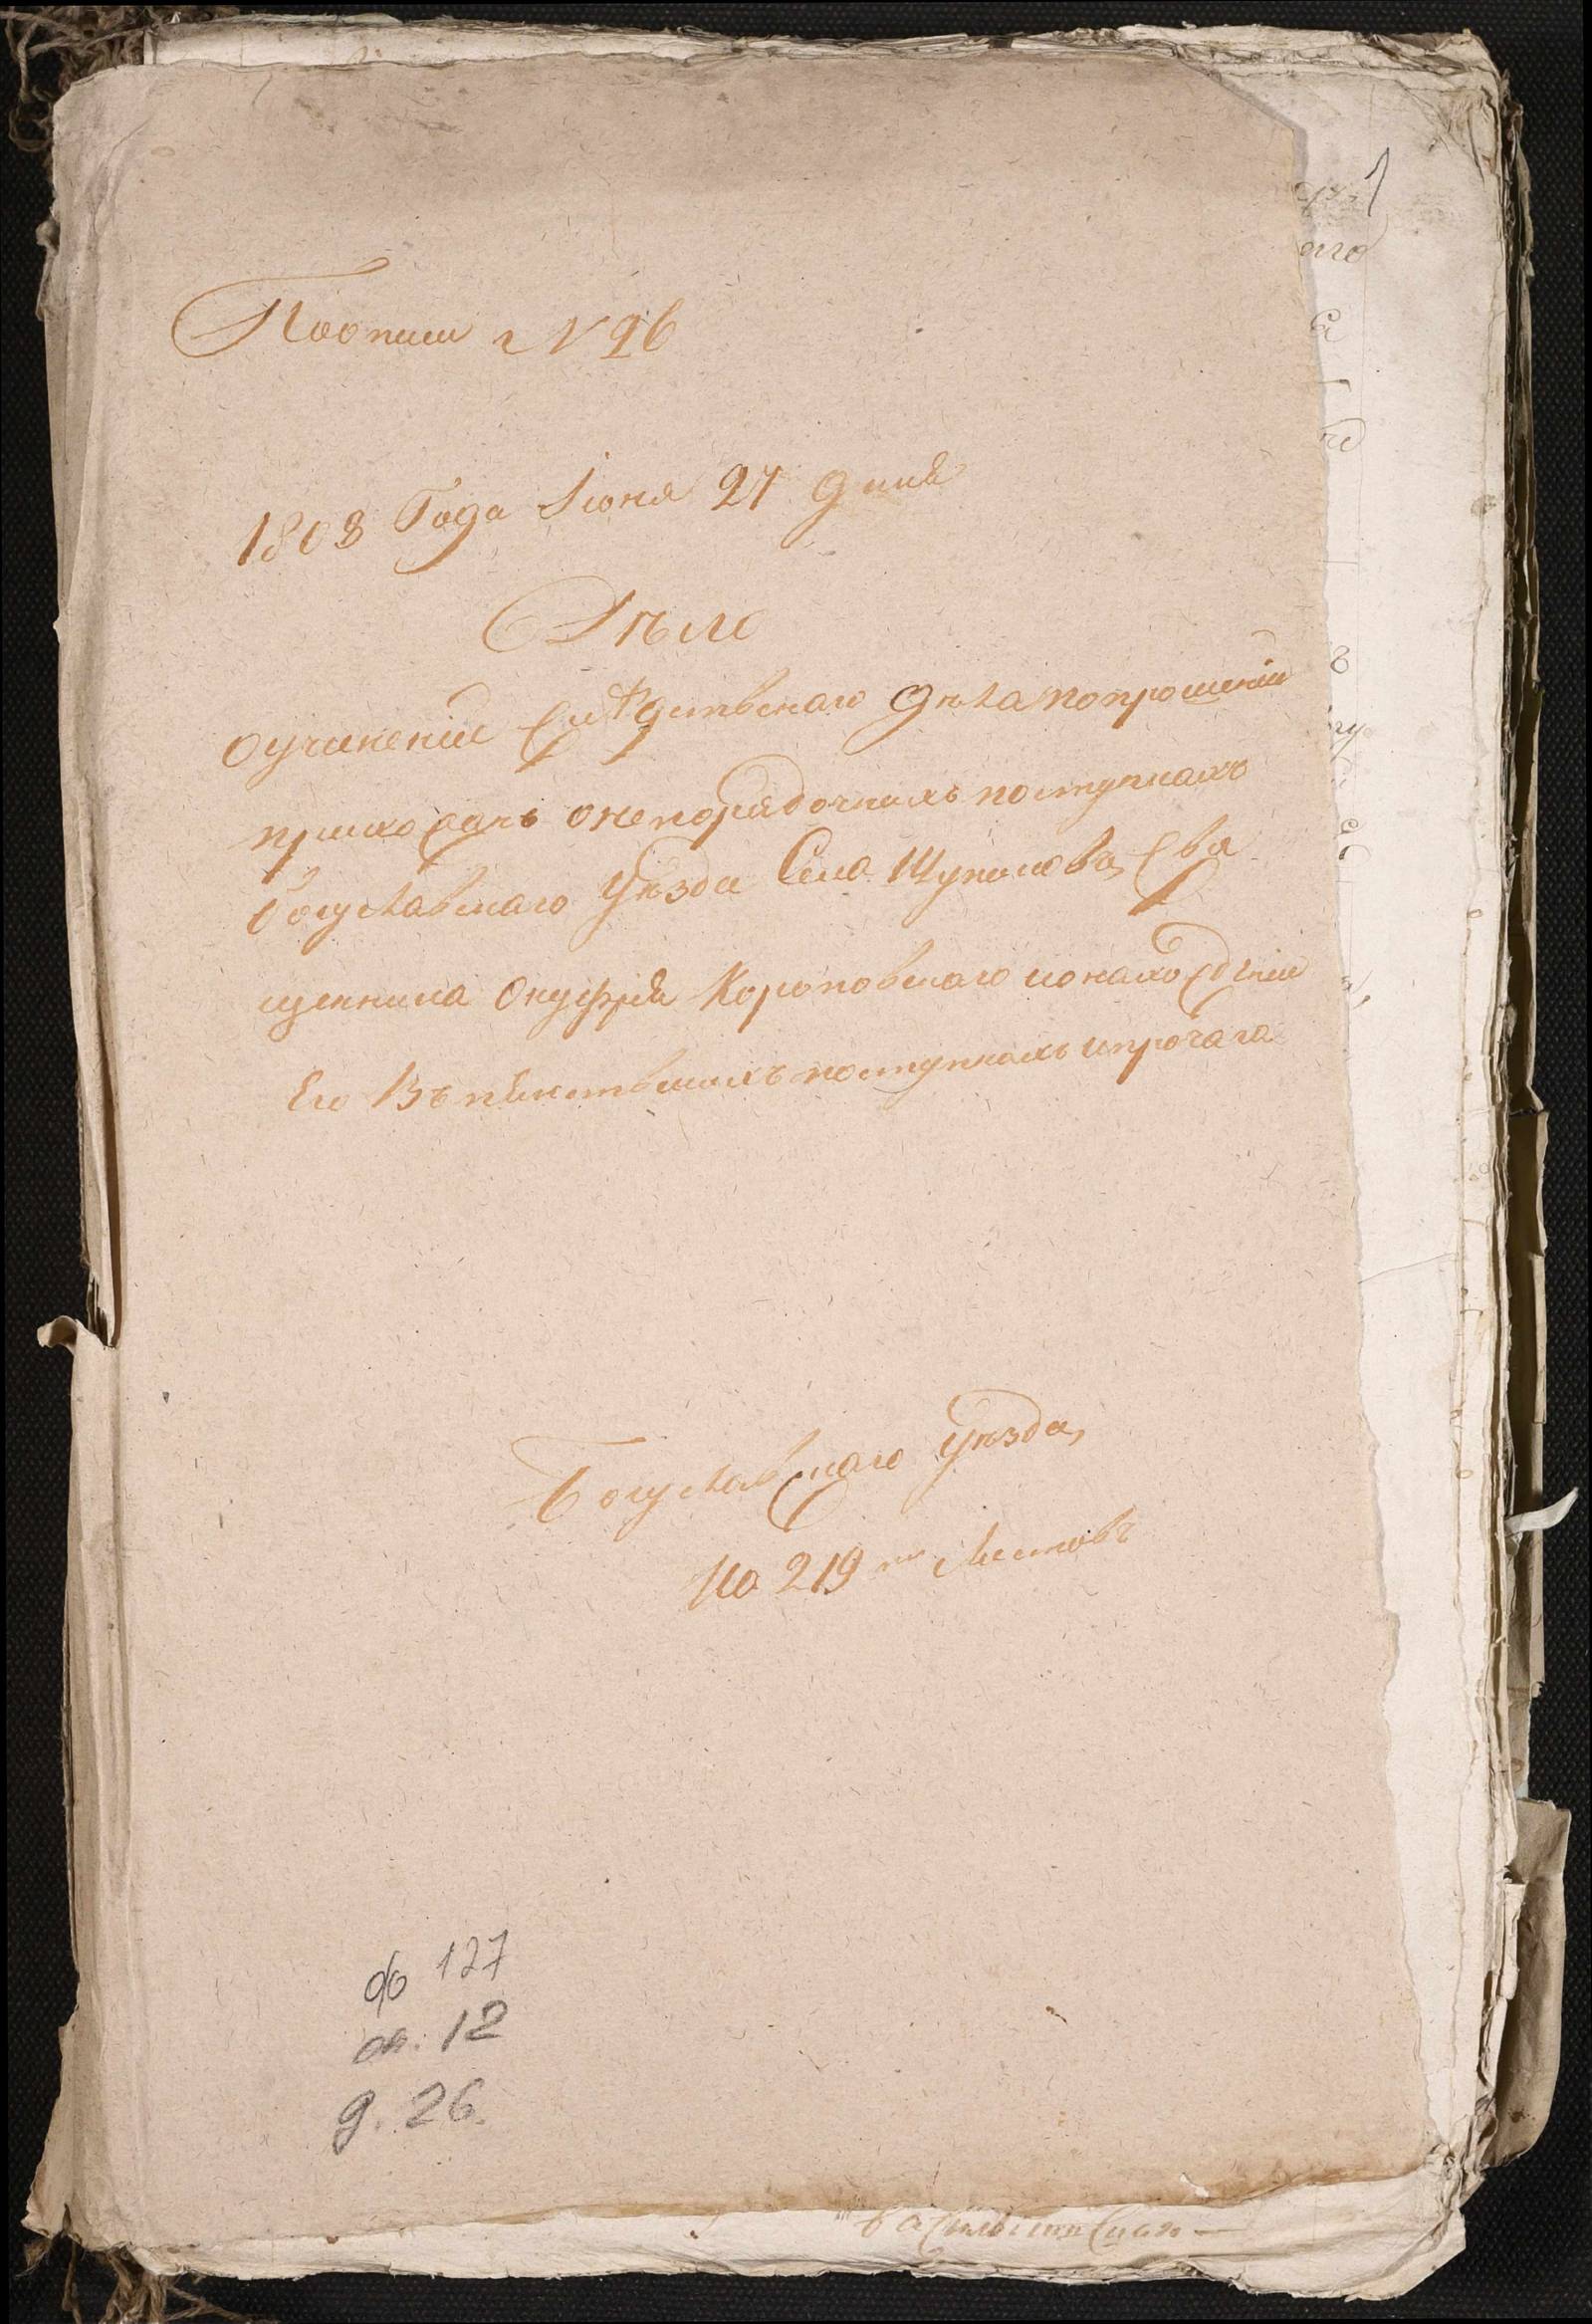 Поописи №26
1808 Года Іюня 27 дння
Дѣло
Оучиненіи слѣдственаго дѣла попрошенію
прихожанъ онепорядочныхъ поступкахъ
богуславскаго уѣзда Села Шуполова Свя
щенника Онуфрія Короповскаго ионахожденіи
Его въ пянственыхъ поступкахъ ипрочаго
Богуславскаго уѣзда,
На 219 ти Листовъ
ф 127
оп. 12
д. 26.
1
аго